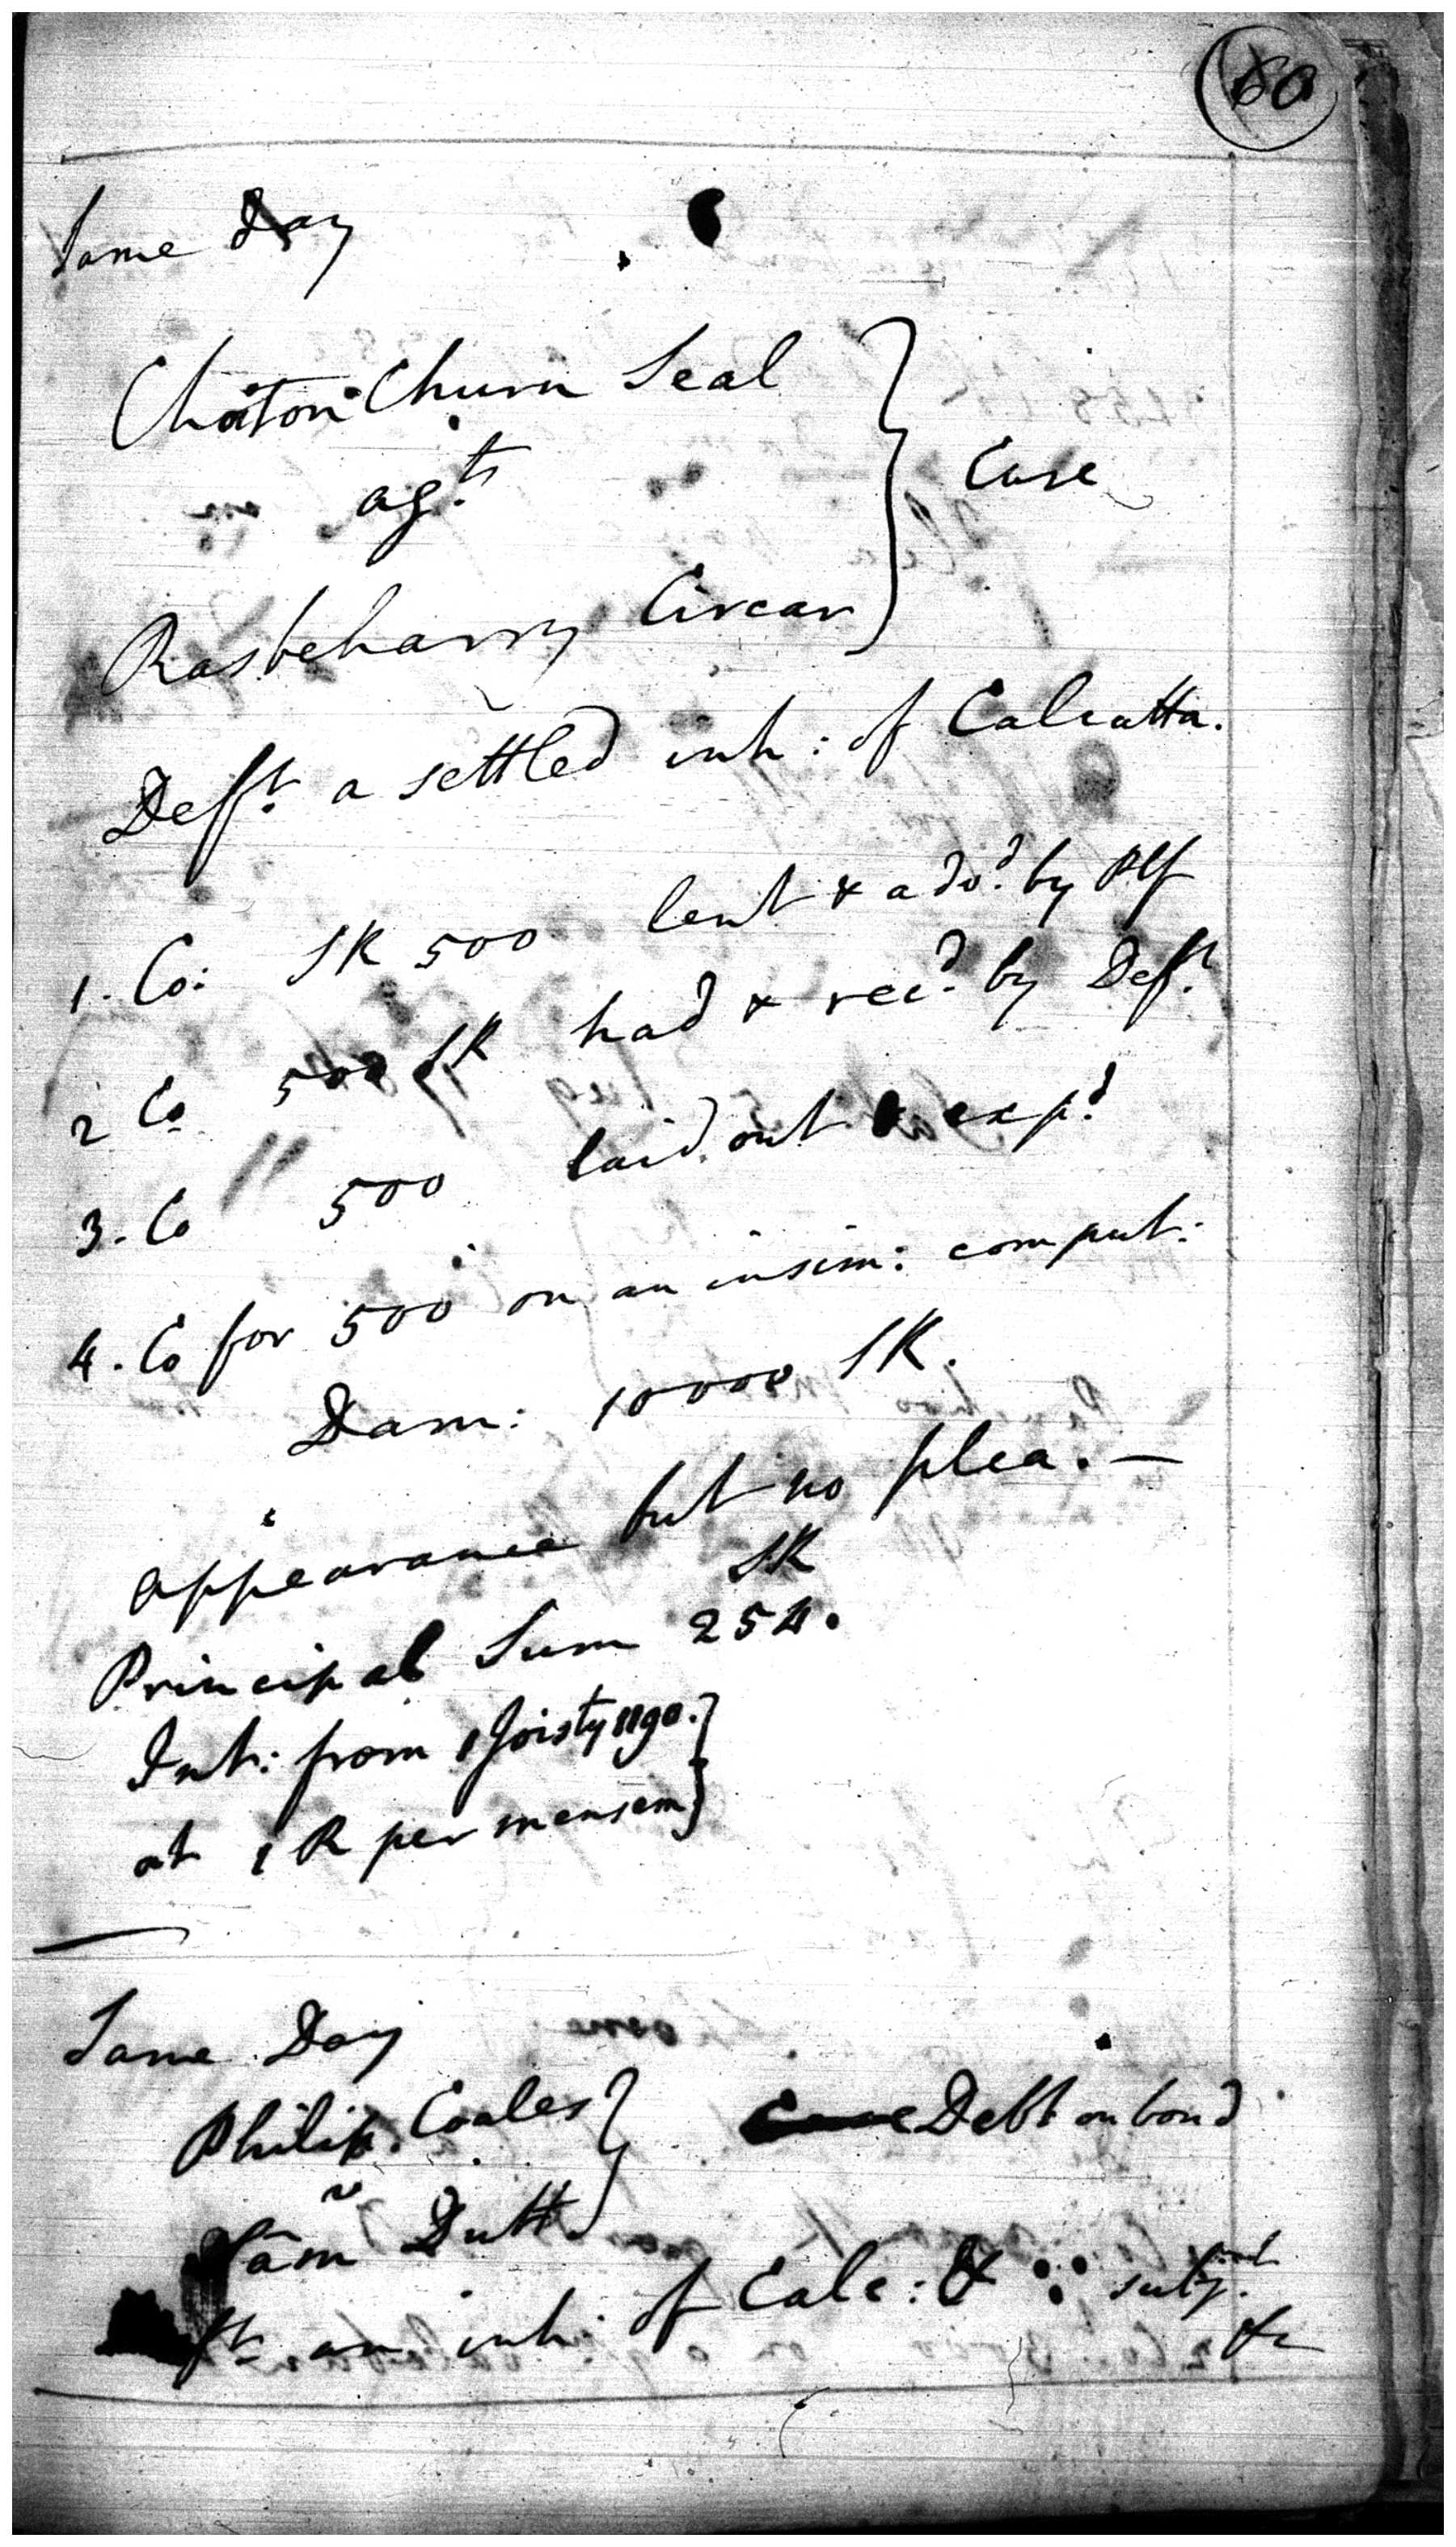 60
Same Day
Choiton Churn Seal
agt
Case
Rasbeharry Circar
Defft. a settled inh: of Calcutta.
1. Co: SR 500 lent & adv.d by Plf
2 Co 500 SR had & rec.d by Deft.
3. Co " 500 laid out & exp.d
4. Co for 500 on an insim: comput:
Dam: 10000 SR.
appearance but no plea. —
SR
Principal Sum 254.
Int: from 1 Joisty 1190.
at 1 R per mensem
Same Day
Philip Coales
Debt on bond
v
Ram Dutt
an inh: of Calc: & ∵ subj.
&c